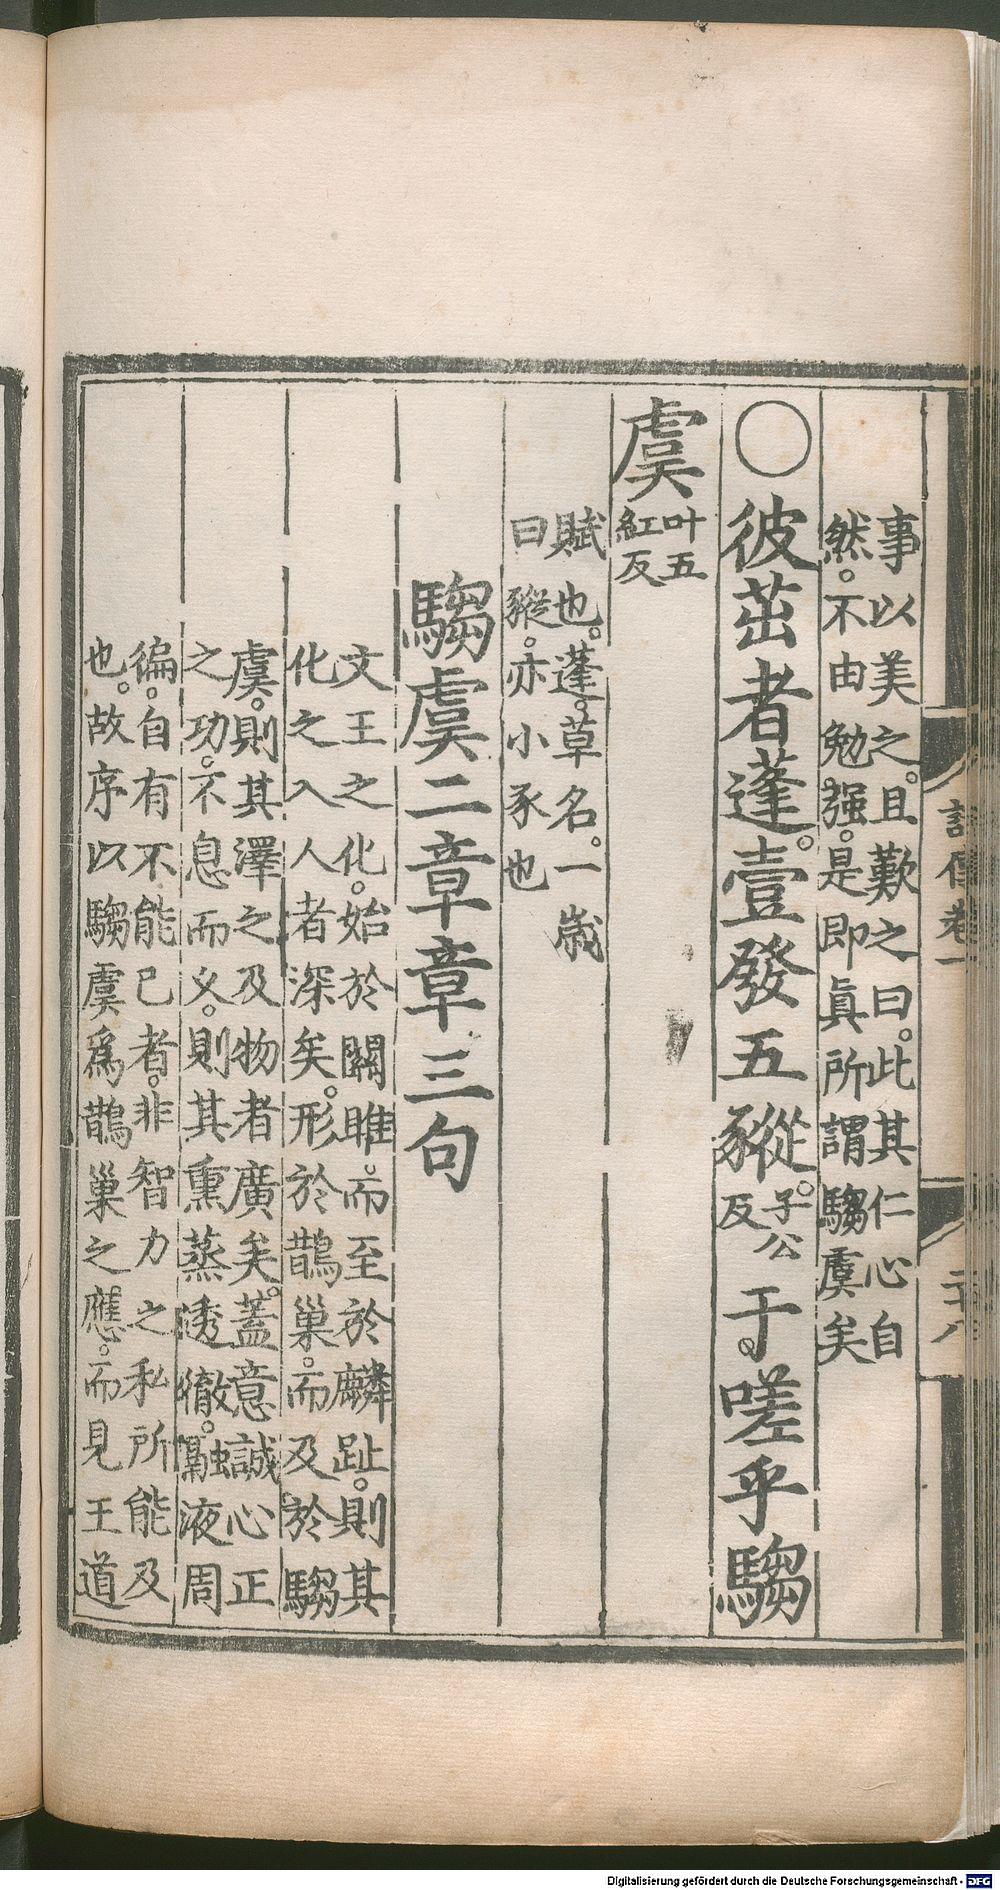 事以美之。且歎之曰。此其仁心自
然。不由勉强。是即眞所謂騶虞矣
○彼茁者蓬。壹發五豵。子公反于。嗟乎騶
虞叶五紅反
賦也。蓬。草名。一歲
曰豵。亦小豕也
騶虞二章章三句
文王之化。始於關雎。而至於麟趾。則其
化之入人者深矣。形於鵲巢。而及於騶
虞。則其澤之及物者廣矣。蓋意誠心正
之功。不息而久。則其熏蒸透徹。融液周
徧。自有不能已者。非智力之私所能及
也。故序以騶虞爲鵲巢之應。而見王道
詩傳卷一
二十八
Digitalisierung gefördert durch die Deutsche Forschungsgemeinschaft - DFG